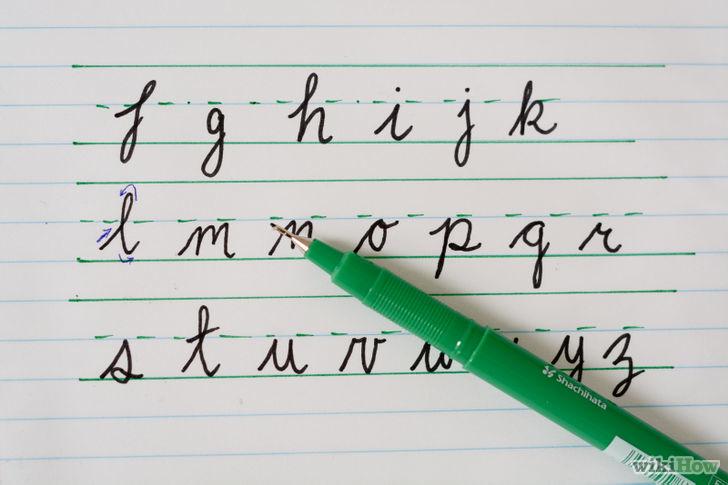 f g h i j k
l m n o p q r
s t u v w y z
Shachihata
wikiHow